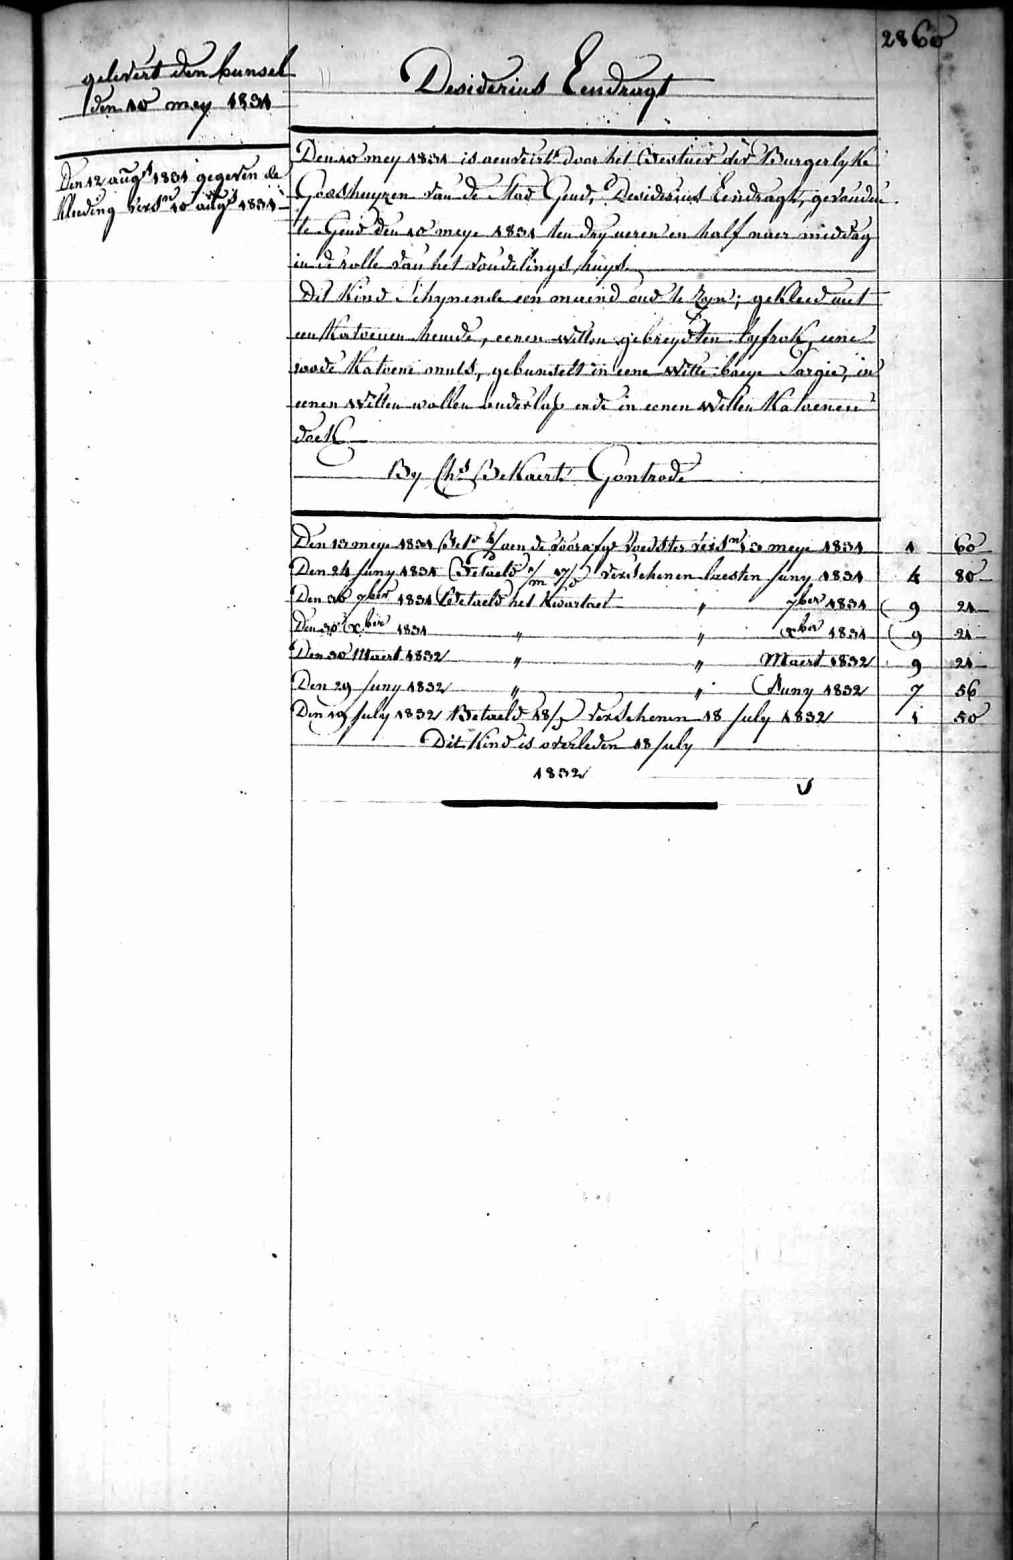 2860
gelevert den bunsel
den 10 mey 1831
Desiderius Eendragt
Den 12 augt 1831 gegeven de
kleeding versn 10 augt 1831
Den 10 mey 1831 is aenveirt door het Bestuer der Burgerlyke
Godshuyzen van de Stad Gend, Desiderius Eendragt, gevonden
te Gend den 10 meye 1831 ten dry ueren en half naer middag
in de rolle van het vondelings huys
Dit Kind Schynende een maend oud te Zyn; gekleed met
een Katoenen hemde, eenen witten gebreyden lyfrok, eene
roode Katoene muts, gebunselt in eene witte baeye Sargie, in
eenen witten wollen onderlap ende in eenen witten Katoenen
doek
By Chs BeKaert Gontrode
Den 13 meye 1831 aen de voedster versn 13 meye 1831 1 60
Den 24 Juny 1831 Betaeld 1/m 17/d verschenen laesten Juny 1831 4 80
Den 30 7ber 1831 Betaeld het Kwartael " 7ber 1831 9 21
Den 30 Xber 1831 " " Xber 1831 9 21
Den 30 Maert 1832 " " Maert 1832 9 21
Den 29 Juny 1832 " " Juny 1832 7 56
Den 19 July 1832 Betaeld 18/d verschenen 18 July 1832 1 50
Dit Kind is overleden 18 July
1832